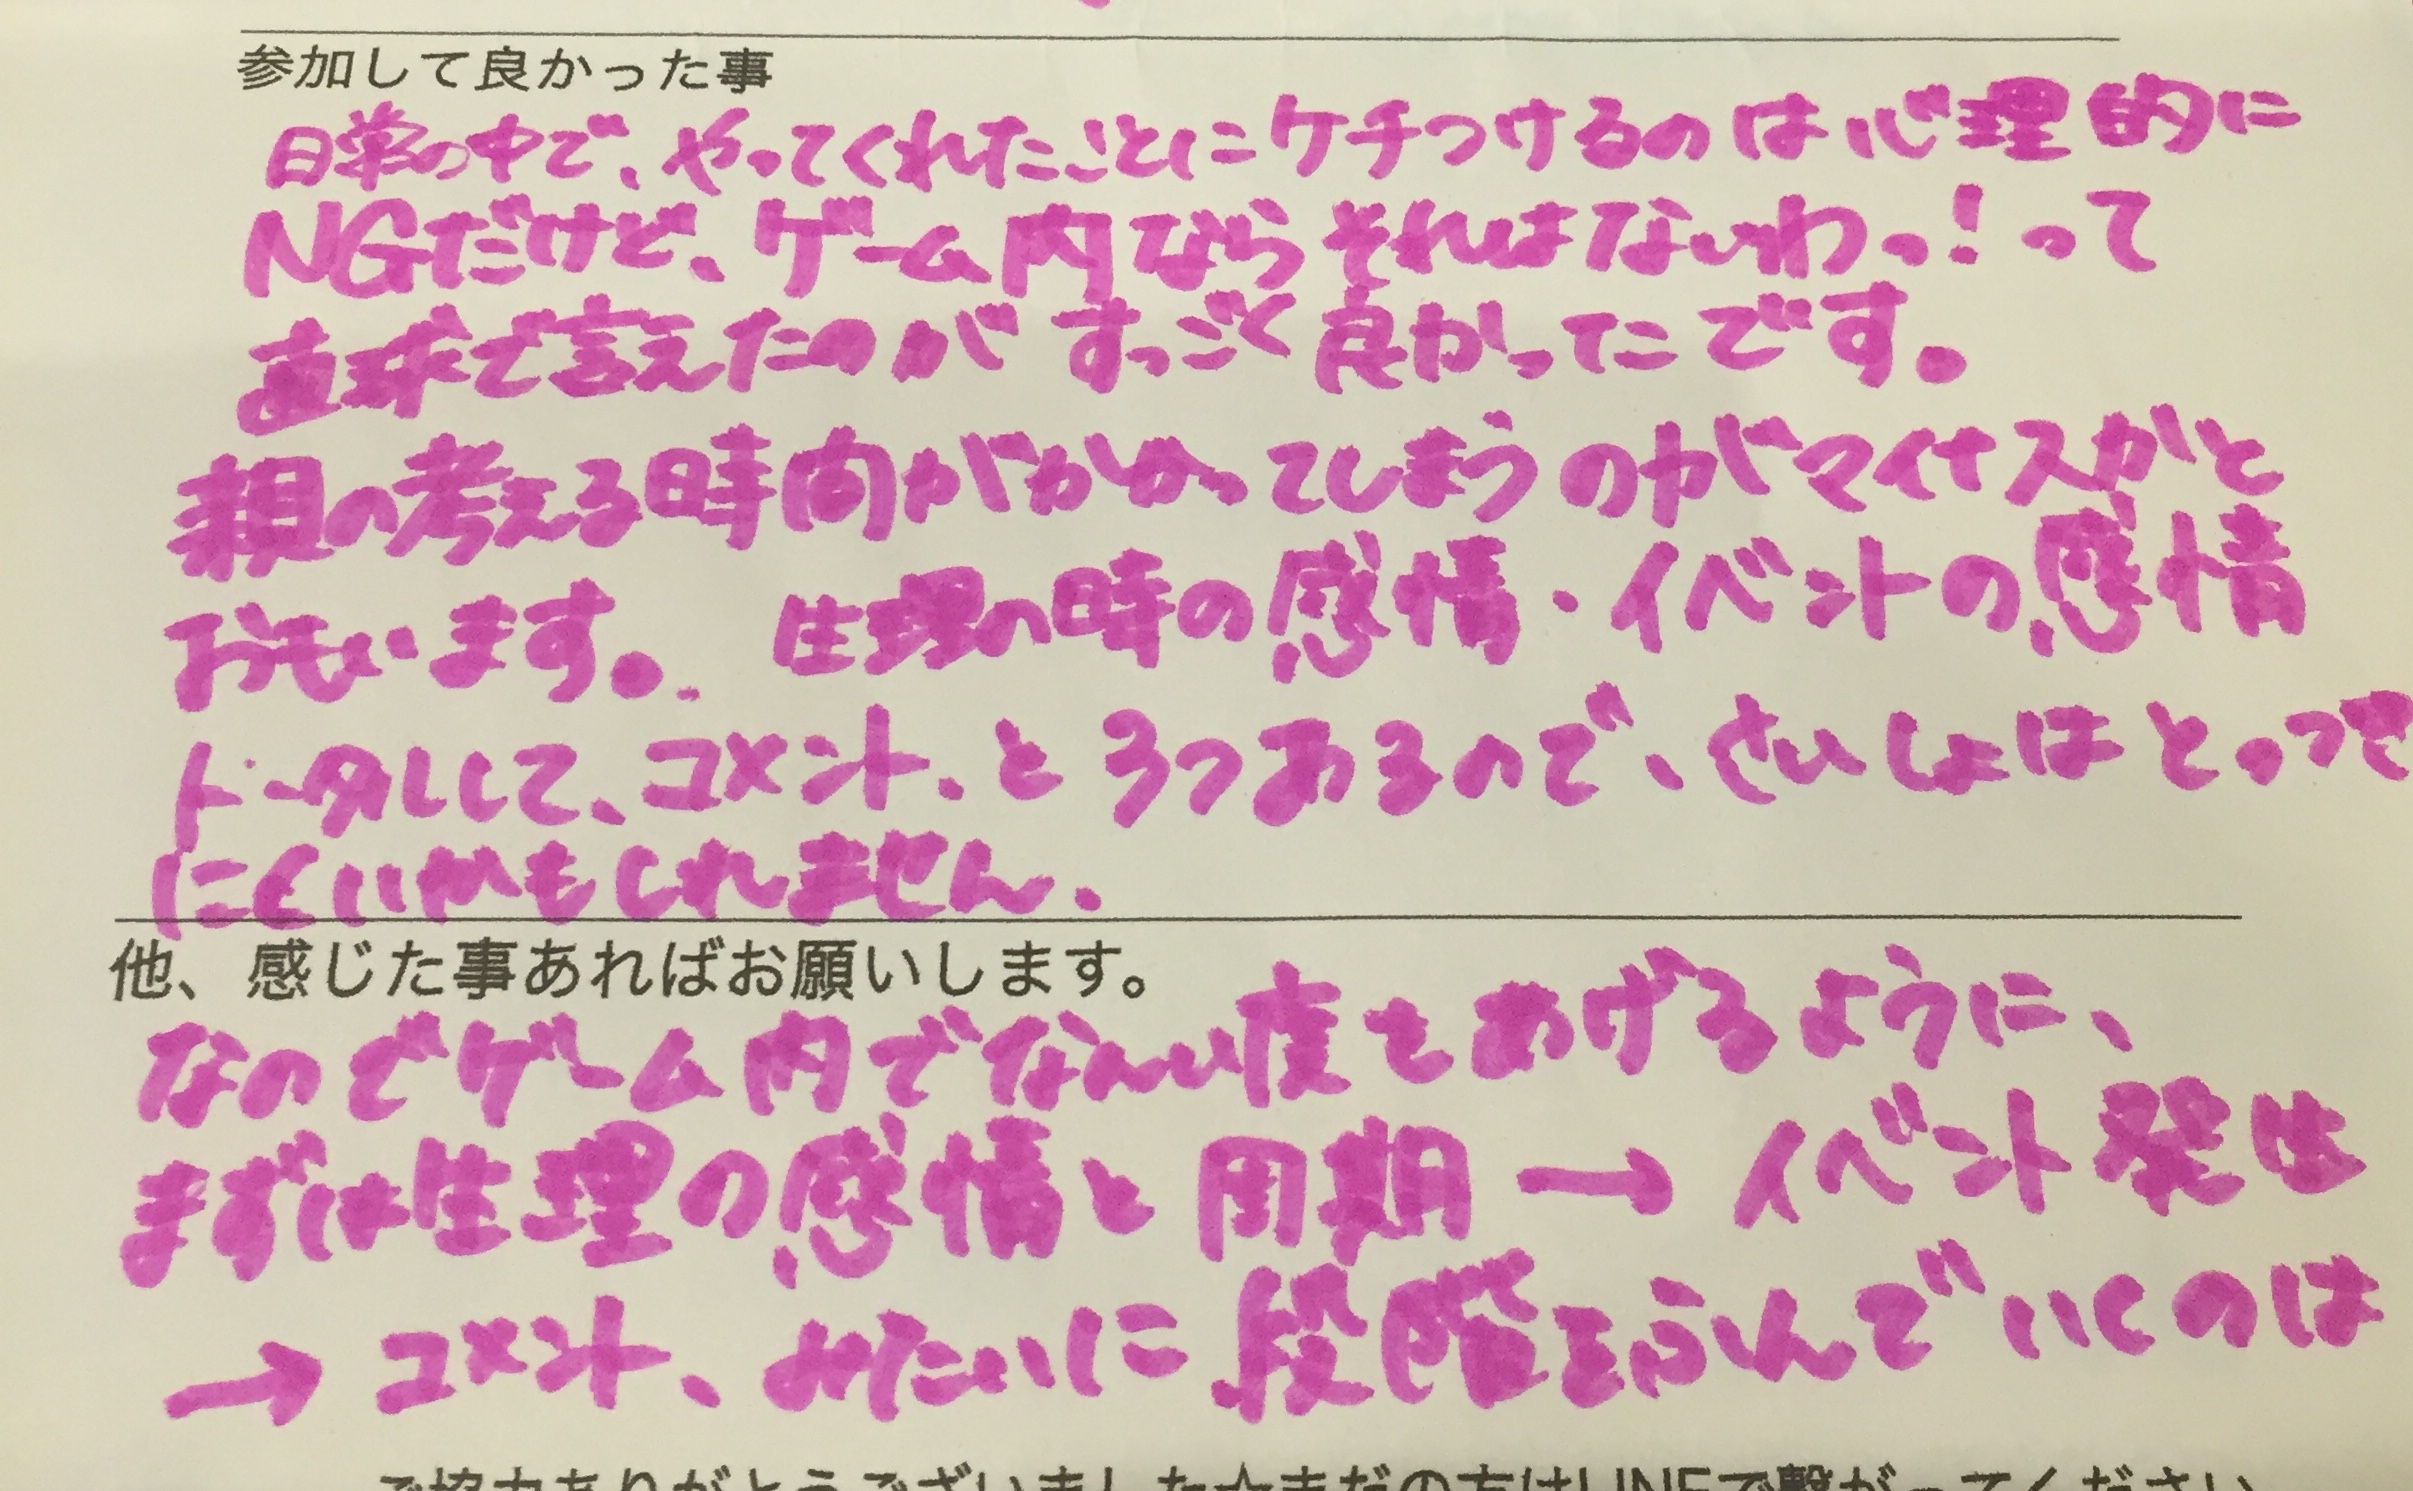 参加して良かった事
日常の中で、やってくれたことにケチつけるのは心理的に
NGだけど、ゲーム内ならそれはないわっ!って
直球で言えたのがすっごく良かったです。
親の考える時間がかかってしまうのがマイナスかと
おもいます。生理の時の感情・イベントの感情
トータルして、コメント、と3つあるので、さいしょはとっつき
にくいかもしれません.
他、感じた事あればお願いします。
なのでゲーム内でなんい度をあげるように、
まずは生理の感情と周期→イベント発生
→コメント、みたいに段階をふんでいくのは
ご協力ありがとうございました☆まだの方はLINEで繋がってください